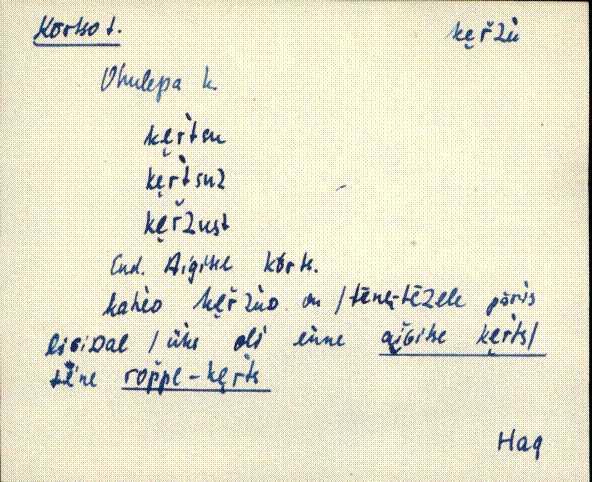 Kortso t. kęržù
Vhulepa k.
kęrtsu
kęrtsuz
kęržust
End. Aigitse kõrts.
kaheo kęržùo on / tēne-tēzele päris
ligiDal / üks oli enne ai̯Gitse kęrts /
tēne roppe-kęrts
Haq